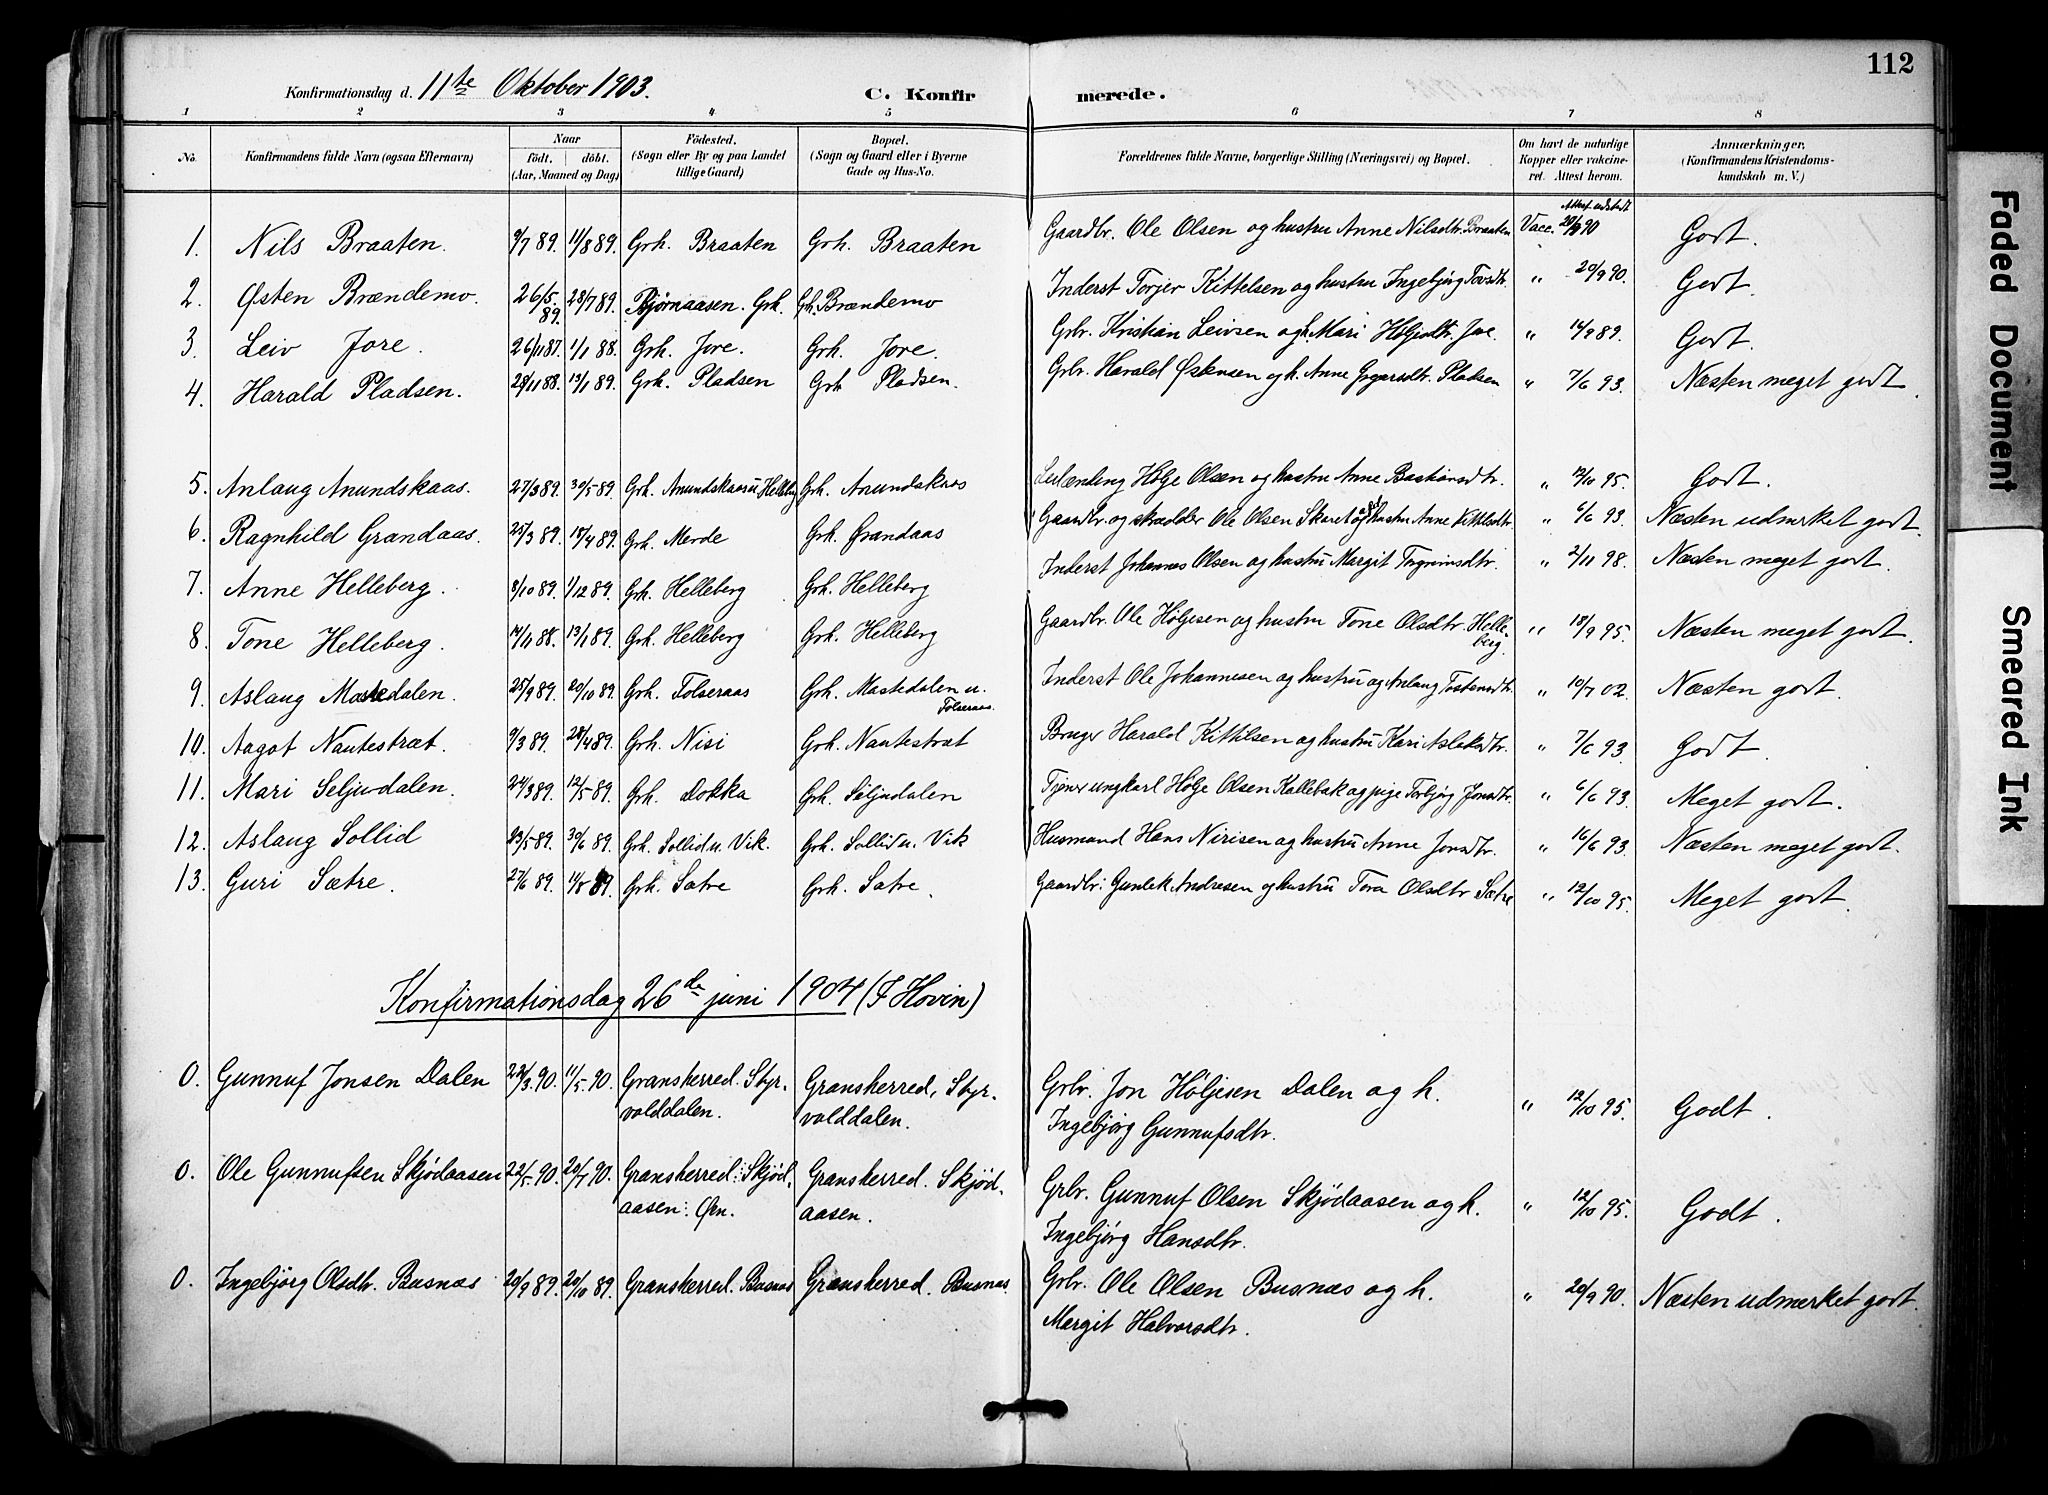 112
Konfirmationsdag d. 11te Oktober 1903.
C. Konfirmerede.
1 2 3 4 5 6 7 8
No. Konfirmandens fulde Navn (ogsaa Efternavn) Naar født. døbt. (Aar, Maaned og Dag) Födested. (Sogn eller By og paa Landet tillige Gaard) Bopæl. (Sogn og Gaard eller i Byerne Gade og Hus-No. Forældrenes fulde Navne, borgerlige Stilling (Næringsvei) og Bopæl. Om havt de naturlige Kopper eller vakcineret. Attest herom. Anmærkninger. (Konfirmandens Kristendomskundskab m. V.)
1. Nils Braaten. 9/7 89. 11/8 89. Grh. Braaten Grh. Braaten Gaardbr. Ole Olsen og hustru Anne Nilsdtr. Braaten Vacc. Attest udstedt 20/9 90 Godt.
2. Østen Brændemo. 26/5 89. 28/7 89. Bjørnaasen. Grh. Grh. Brændemo Inderst Torjer Kittelsen og hustru Ingebjørg Torsdtr. " 20/9 90. Godt.
3. Leiv Jore. 26/11 87. 1/1 88. Grh. Jore. Grh. Jore. Grbr. Kristian Leivsen og h. Mari Høljesdtr. Jore. " 14/9 89. Godt.
4. Harald Pladsen. 28/11 88. 13/1 89. Grh. Pladsen Grh Pladsen. Grbr. Harald Østensen og h. Anne Pladsen " 7/6 93. Næsten meget godt.
5. Anlaug Anundskaas. 27/3 89. 30/5 89. Grh. Anundskaas u. Helleberg Grh. Anundskaas Leilænding Hølje Olsen og hustru Anne Bastiansdtr. " 12/10 95. Godt.
6. Ragnhild Grandaas. 25/3 89. 18/4 89. Grh. Merde Grh. Grandaas Gaardbr. og skrædder Ole Olsen Skaret og hustru Anne Kittilsdtr. " 6/6 93. Næsten udmerket godt.
7. Anne Helleberg. 8/10 89. 1/12 89. Grh. Helleberg Grh. Helleberg Inderst Johannes Olsen og hustru Margit Tngrimsdtr. " 2/11 98. Næsten meget godt.
8. Tone Helleberg. 14/11 88. 13/1 89. Grh. Helleberg Grh. Helleberg Gaardbr. Ole Høljesen og hustru Tone Olsdtr. Helleberg. " 18/9 95. Næsten meget godt.
9. Aslaug Mastedalen. 25/9 89. 20/10 89. Grh. Folseraas Grh. Mastedalen u. Folseraas. Inderst Ole Johannesen og hustru og Anlaug Tostensdtr. " 10/7 02. Næsten godt.
10. Aagot Nautestræt. 9/3 89. 28/4 89. Grh. Nisi Grh. Nautestræt Bruger Harald Kittilsen og hustru Kari Aslaksdtr. " 7/6 93. Godt.
11. Mari Seljudalen. 24/3 89. 12/5 89. Grh. Dokka Grh. Seljudalen Tjener ungkarl Hølje Olsen Kallebæk og pige Torbjørg Jonsdtr. " 6/6 93. Meget godt.
12. Aslaug Sollid 23/5 89. 30/6 89. Grh. Sollid u. Vik. Grh. Sollid u. Vik Husmand Hans Nirisen og hustru Anne Jonsdtr. " 16/6 93. Næsten meget godt.
13. Guri Sætre. 27/6 89. 11/8 89. Grh. Sætre Grh. Sætre. Gaardbr: Gunlek Andresen og hustru Tora Olsdtr Sætre " 12/10 95. Meget godt.
Konfirmationsdag 26de juni 1904 (I Hovin)
0. Gunnuf Jonsen Dalen 22/3 90. 11/5 90. Gransherred. Styrvolddalen. Gransherred, Styrvolddalen. Grbr. Jon Høljesen Dalen og h. Ingebjørg Gunnufsdtr. " 12/10 95. Godt.
0. Ole Gunnufsen Skjødaasen 22/5 90. 20/7 90. Gransherred: Skjødaasen: Øvn. Gransherred. Skjødaasen. Grbr. Gunnuf Olsen Skjødaasen og h. Ingebjørg Hansdtr. " 12/10 95. Godt.
0. Ingebjørg Olsdtr. Busnæs 20/9 89. 20/10 89. Gransherred. Busnæs Gransherred. Busnæs. Grbr. Ole Olsen Busnæs og h. Margit Halvorsdtr. " 20/9 90. Næsten udmerket godt.
Faded Document
Smeared Ink